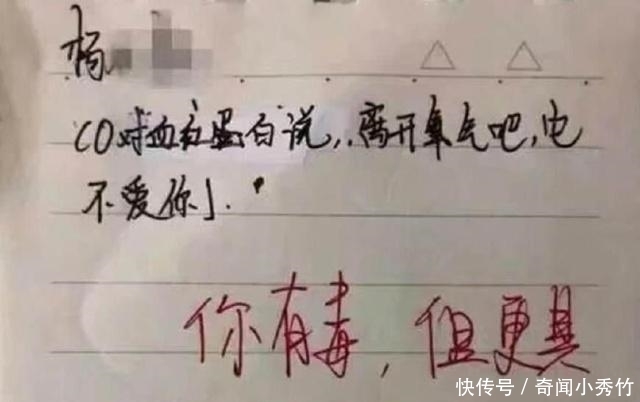 杨
CO对血红蛋白说,离开氧气吧,它
不爱你了.
你有毒,但更具
快传号 / 奇闻小秀竹